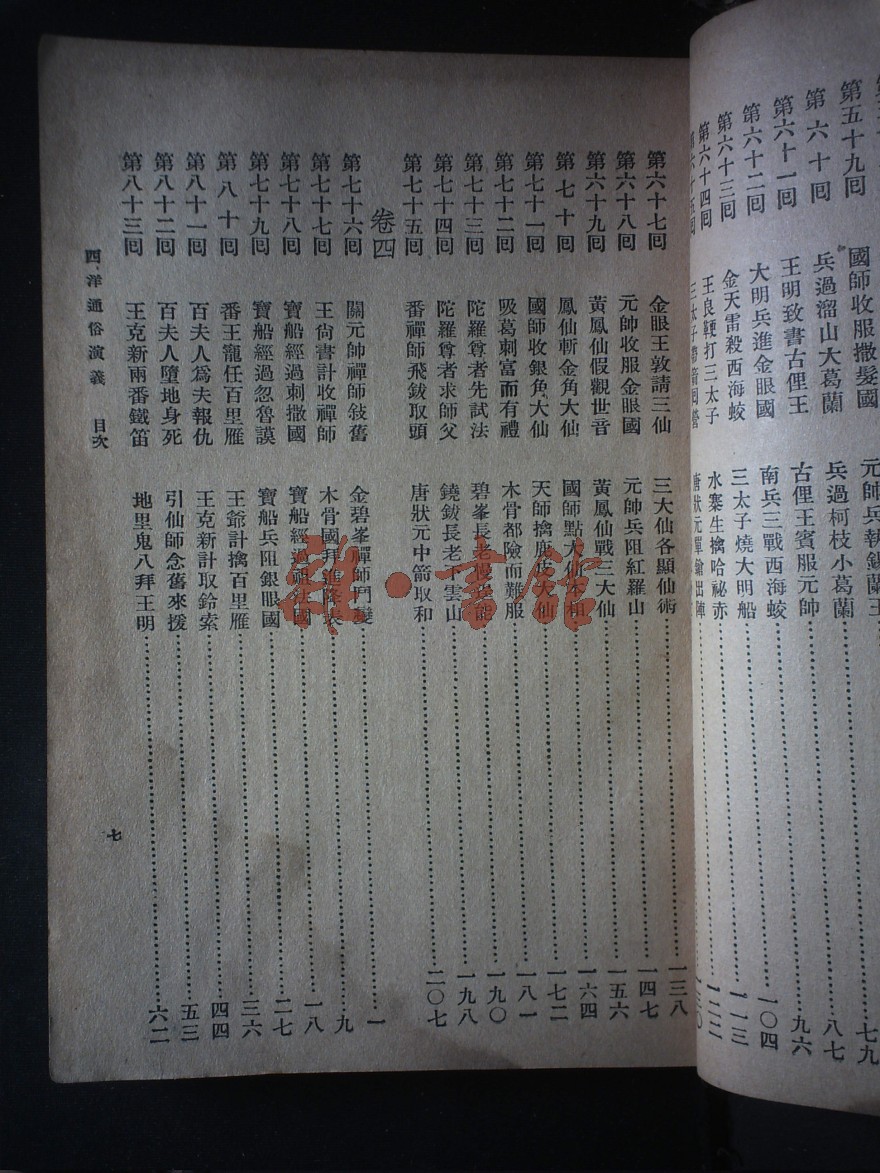 第五十九回 國師收服撒髮國 元帥兵執錫蘭王 七九
第六十回 兵過溜山大葛蘭 兵過柯枝小葛蘭 八七
第六十一回 王明致書古俚王 古俚王賓服元帥 九六
第六十二回 大明兵進金眼國 南兵三戰西海蛟 一〇四
第六十三回 金天雷殺西海蛟 三太子燒大明船 一一三
第六十四回 王良鞭打三太子 水寨生擒哈祕赤 一二二
第六十五回 三太子 唐狀元單鎗出陣 一三〇
第六十七回 金眼王敦請三仙 三大仙各顯仙術 一三八
第六十八回 元帥收服金眼國 元帥兵阻紅羅山 一四七
第六十九回 黃鳳仙假觀世音 黃鳳仙戰三大仙 一五六
第七十回 鳳仙斬金角大仙 國師點大仙本相 一六四
第七十一回 國師收銀角大仙 天師擒鹿皮大仙 一七二
第七十二回 吸葛刺富而有禮 木骨都險而難服 一八一
第七十三回 陀羅尊者先試法 碧峯長老慢逞能 一九〇
第七十四回 陀羅尊者求師父 鐃鈸長老下雲山 一九八
第七十五回 番禪師飛鈸取頭 唐狀元中箭取和 二〇七
卷四
第七十六回 關元帥禪師敍舊 金碧峯禪師鬥變 一
第七十七回 王尙書計收禪師 木骨國拜進降表 九
第七十八回 寶船經過刺撒國 寶船經過祖法國 一八
第七十九回 寶船經過忽魯謨 寶船兵阻銀眼國 二七
第八十回 番王寵任百里雁 王爺計擒百里雁 三六
第八十一回 百夫人爲夫報仇 王克新計取鈴索 四四
第八十二回 百夫人墮地身死 引仙師念舊來援 五三
第八十三回 王克新兩番鐵笛 地里鬼八拜王明 六二
西洋通俗演義 目次 七
雜·書館